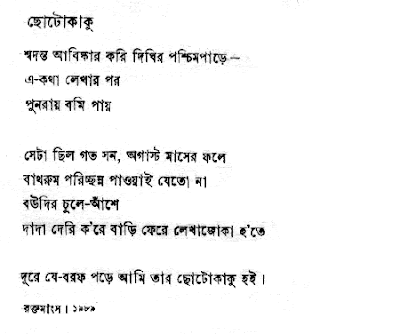 ছোটোকাকু
শ্বদন্ত আবিষ্কার করি দিঘির পশ্চিমপাড়ে—
এ-কথা লেখার পর
পুনরায় বমি পায়
সেটা ছিল গত সন, অগাস্ট মাসের ফলে
বাথরুম পরিচ্ছন্ন পাওয়াই যেতো না
বউদির চুলে-আঁশে
দাদা দেরি ক'রে বাড়ি ফেরে লেখাজোকা হ'তে
দূরে যে-বরফ পড়ে আমি তার ছোটোকাকু হই।
রক্তমাংস। ১৯৮৯